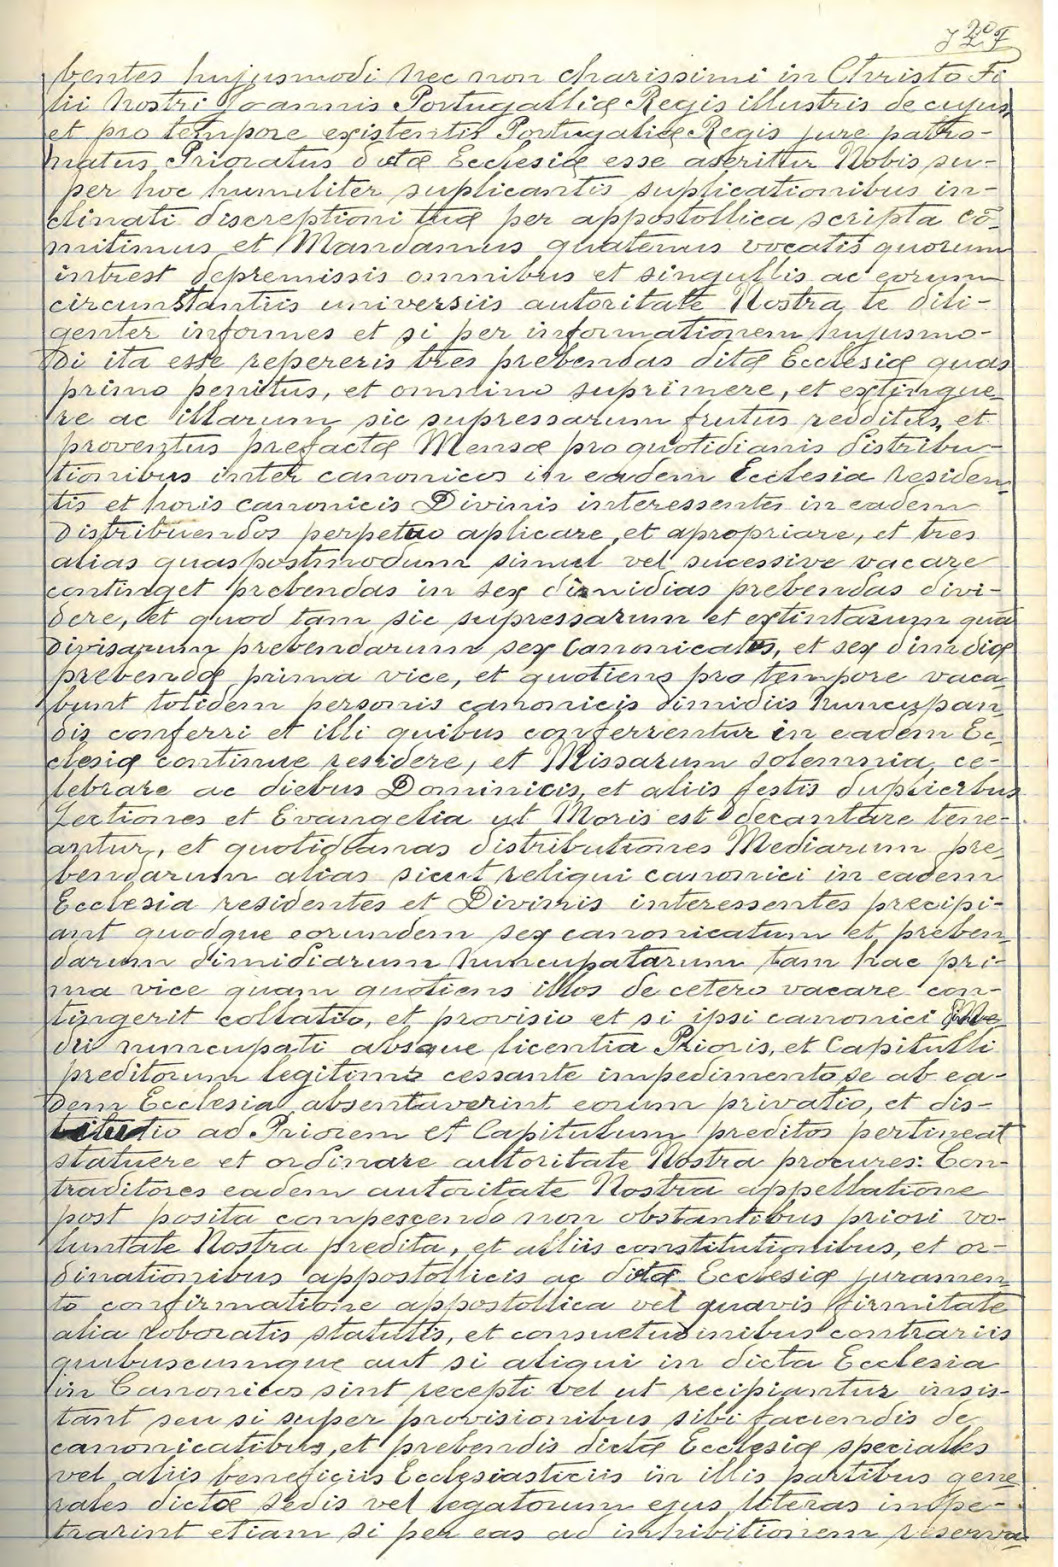 bentes hujusmodi nec non charissimi in Christo Fi
lii Nostri Joannis Portugalliæ Regis illustris de cujus
et pro tempore existentis Portugaliæ Regis jure patro-
natus Prioratus dictæ Ecclesiæ esse aseritur Nobis su-
per hoc humiliter suplicantis suplicationibus in-
clinati discreptioni tuæ per appostollica scripta cõ-
mitimus et Mandamus quatenus vocatis quorum
intrest depremissis omnibus et singullis ac eorum
circumstantiis universiis autoritate Nostra te dili-
genter informes et si per informationem hujusmo-
di ita esse repereris tres prebendas ditæ Ecclesiæ quas
primo penitus, et omnino suprimere, et extingue-
re ac illarum sic supressarum frutus redditus, et
proventus prefactæ Mensæ pro quotidianis distribu-
tionibus inter canonicos in eadem Ecclesia residen-
tis et horis canonicis Divinis interessentes in eadem
distribuendos perpetuo aplicare, et apropriare, et tres
alias quas postmodum simul vel sucessive vacare
continget prebendas in sex dimidias prebendas divi-
dere, et quod tam sic supressarum et extintarum quã
divisarum prebendarum sex Canonicatus, et sex dimidiæ
prebendæ prima vice, et quotiens pro tempore vaca-
bunt totidem personis canonicis dimidiis nuncupan-
dis conferri et illi quibus conferrentur in eadem Ec-
clesiæ continue residere, et Missarum solemnia ce-
lebrare ac diebus Dominicis, et aliis festis duplicibus
Lectiones et Evangelia ut Moris est decantare tene-
antur, et quotidianas distributiones Mediarum pre-
bendarum alias sicut reliqui canonici in eadem
Ecclesia residentes et Divinis interessentes precipi-
ant quodque eorundem sex canonicatum et preben-
darum dimidiarum nuncupatarum tam hac pri-
ma vice quam quotiens illos de cetero vacare con-
tingerit collatio, et provisio et si ipsi canonici
dii nuncupati absque licentia Prioris, et Capitulli
preditorum legitimo cessante impedimento se ab ea-
dem Ecclesia absentaverint eorum privatio, et dis-
tio ad Priorem et Capitulum preditos pertineat
statuere et ordinare autoritate Nostra procures: Con-
traditores eadem autoritate Nostra appellatione
post posita compescendo non obstantibus priori vo-
luntate Nostra predita, et alliis constitutionibus, et or-
dinationibus appostollicis ac dictæ Ecclesiæ juramen-
to confirmatione appostollica vel quavis firmitate
alia roboratis statutis, et consuetudinibus contrariis
quibuscumque aut si aliqui in dicta Ecclesia
in Canonicos sint recepti vel ut recipiantur insis-
tant seu si super provisionibus sibi faciendis de
canonicatibus, et prebendis dictæ Ecclesiæ specialles
vel aliis beneficiis Ecclesiasticiis in illis partibus gene-
rales dictæ sedis vel legatorum ejus literas impe-
trarint etiam si per eas ad inhibitionem reserva-